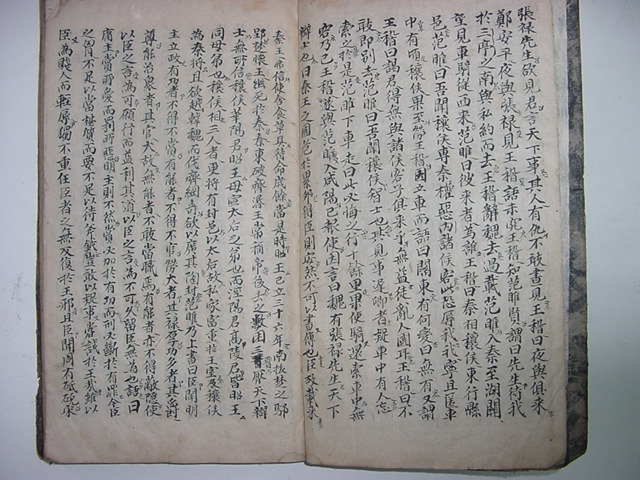 張祿先生欲見君言天下事其人有仇不敢晝見王稽曰夜與俱來
鄭安平夜與張祿見王稽語未究王稽知范雎賢謂曰先生待我
於三亭之南與私約而去王稽辭魏去過載范雎入秦至湖關
望見車騎從西來范雎曰彼來者為誰王稽曰秦相穰侯東行縣
邑范雎曰吾聞穰侯專秦權惡內諸侯客此恐辱我我寧且匿車
中有頃穰侯果至勞王稽因立車而語曰關東有何變曰無有又謂
王稽曰謁君得無與諸侯客子俱來乎無益徒亂人國耳王稽曰不
敢即別去范雎曰吾聞穰侯智士也其見事遲鄉者疑車中有人忘
索之於是范雎下車走曰此必悔之行十餘里果使騎還索車中無
客乃已王稽遂與范雎入咸陽已報使因言曰魏有張祿先生天下
辯士也曰秦王之國危於累卵得臣則安然不可以書傳也臣故載來
秦王弗信使舍食草具待命歲餘當是時昭王已立三十六年南拔楚之鄢
郢楚懷王幽死於秦秦東破齊湣王嘗稱帝後去之數困三晉厭天下辯
士無所信穰侯華陽君昭王母宣太后之弟也而涇陽君高陵君皆昭王
同母弟也穰侯相三人者更將有封邑以太后故私家富重於王室及穰侯
為秦將且欲越韓魏而伐齊綱壽欲以廣其陶封范雎乃上書曰臣聞明
主立政有功者不得不賞有能者不得不官勞大者其祿厚功多者其爵
尊能治眾者其官大故無能者不敢當職焉有能者亦不得蔽隱使
以臣之言為可願行而益利其道以臣之言為不可久留臣無為也語曰
庸主賞所愛而罰所惡明主則不然賞必加於有功而刑必斷於有罪今臣
之胸不足以當椹質而要不足以待斧鉞豈敢以疑事嘗試於王哉雖以
臣為賤人而輕辱獨不重任臣者之無反復於王邪且臣聞周有砥砨宋